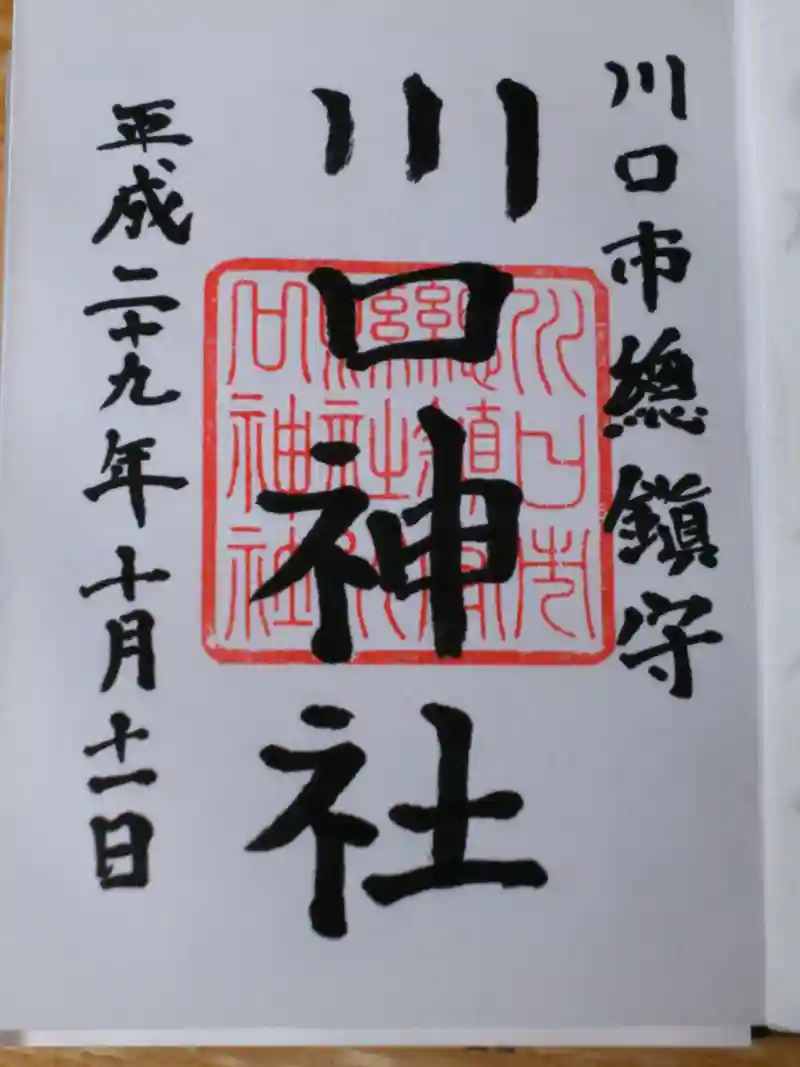 川口市總鎮守
川口神社
川口市
總鎮守
縣社川
口神社
平成二十九年十月十一日